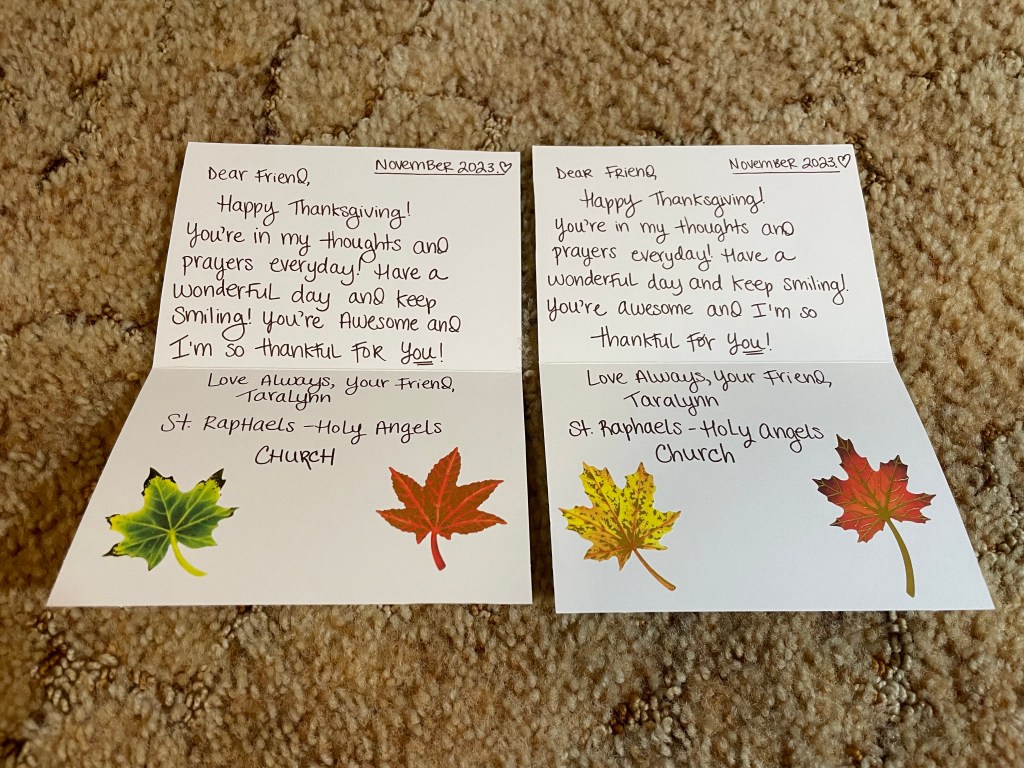 November 2023.♡
Dear Friend,
Happy Thanksgiving!
You're in my thoughts and
prayers everyday! Have a
wonderful day and keep
smiling! You're Awesome and
I'm so thankful for you!
Love Always, your Friend,
Taralynn
St. Raphaels - Holy Angels
CHURCH
November 2023.♡
Dear Friend,
Happy Thanksgiving!
You're in my thoughts and
prayers everyday! Have a
wonderful day and keep smiling!
You're awesome and I'm so
thankful for you!
Love Always, your Friend,
Taralynn
St. Raphaels - Holy Angels
Church